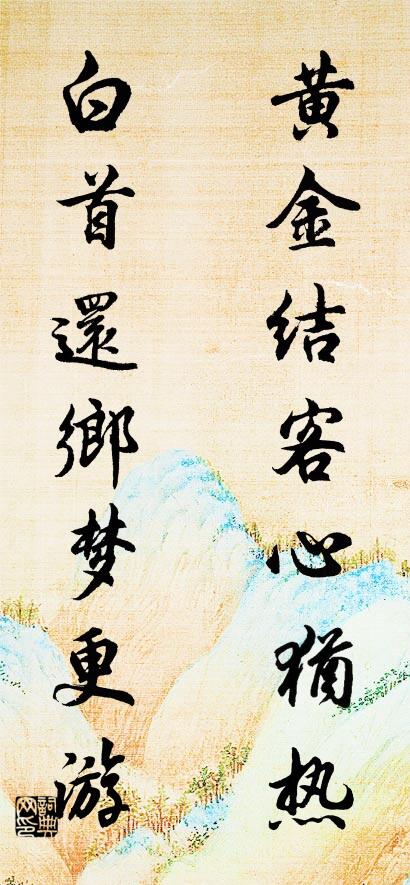 黄金结客心猶热
白首還鄉梦更游
詞典网印